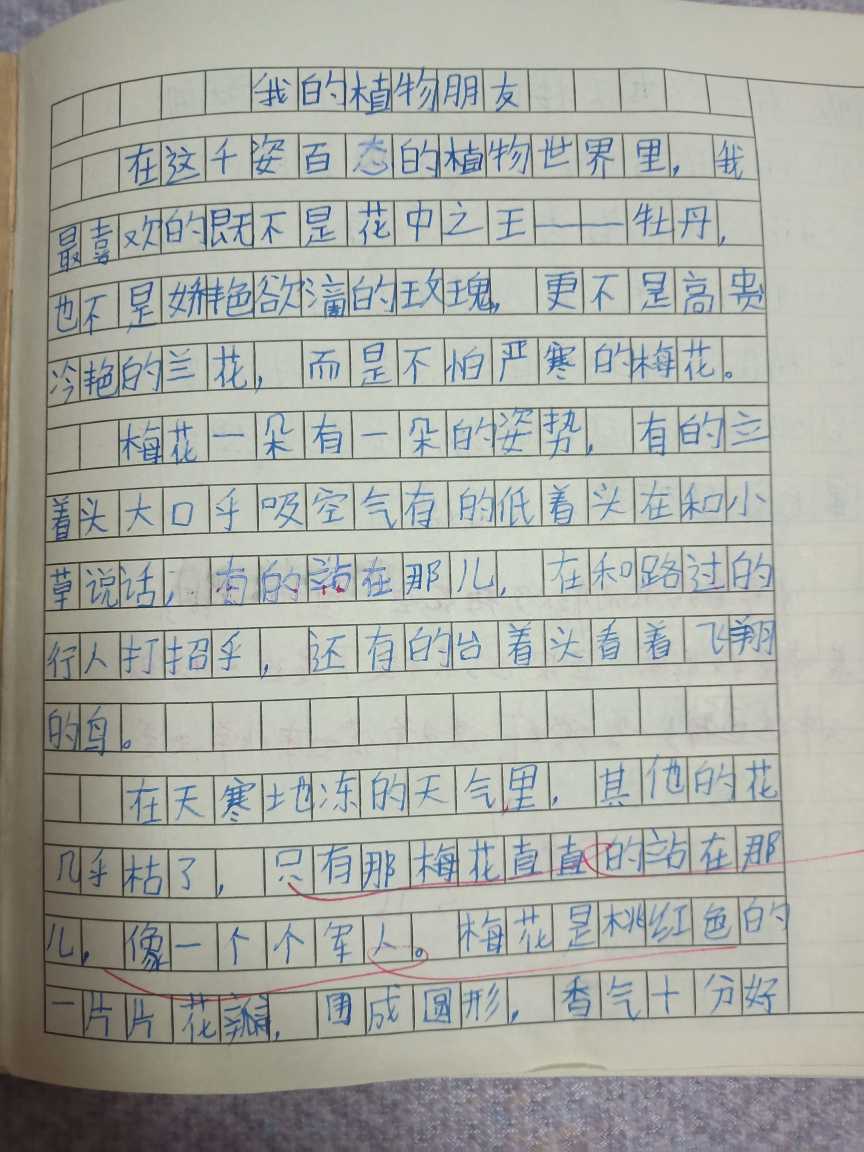 我的植物朋友
在这千姿百态的植物世界里，我
最喜欢的既不是花中之王——牡丹，
也不是娇艳欲滴的玫瑰，更不是高贵
冷艳的兰花，而是不怕严寒的梅花。
梅花一朵有一朵的姿势，有的立
着头大口乎吸空气有的低着头在和小
草说话，有的站在那儿，在和路过的
行人打招乎，还有的台着头看着飞翔
的鸟。
在天寒地冻的天气里，其他的花
几乎枯了，只有那梅花直直的站在那
儿，像一个个军人。梅花是桃红色的
一片片花瓣，围成圆形，香气十分好